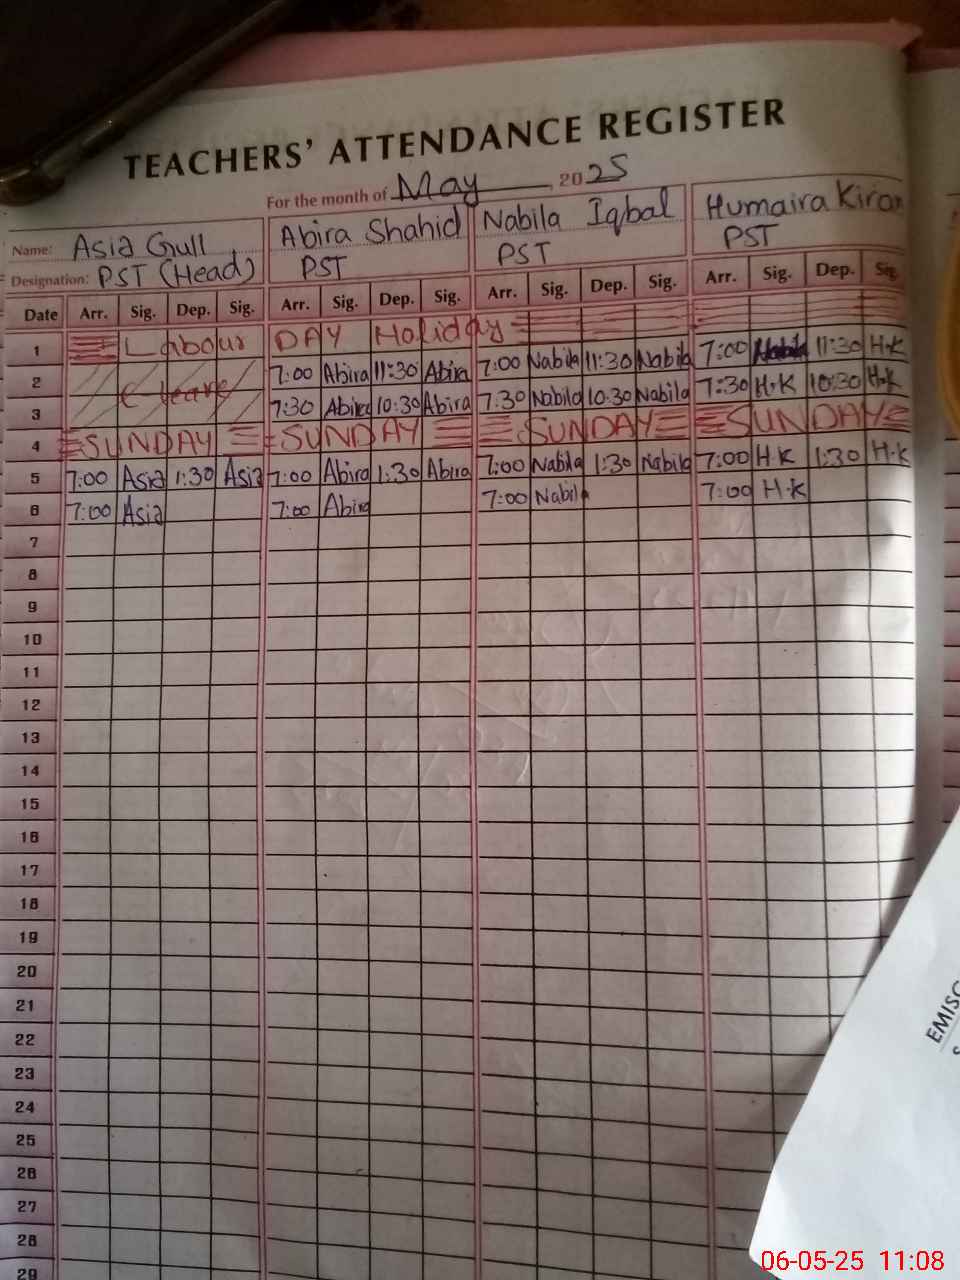 TEACHERS' ATTENDANCE REGISTER
For the month of May, 2025
Name: Asia Gull Abira Shahid Nabila Iqbal Humaira Kiran
Designation: PST (Head) PST PST PST
Date Arr. Sig. Dep. Sig. Arr. Sig. Dep. Sig. Arr. Sig. Dep. Sig. Arr. Sig. Dep. Sig.
1 Labour DAY Holiday
2 C-leave 7:00 Abira 11:30 Abira 7:00 Nabila 11:30 Nabila 7:00 11:30 H.K
3 7:30 Abira 10:30 Abira 7:30 Nabila 10:30 Nabila 7:30 H.K 10:30 H.K
4 SUNDAY SUNDAY SUNDAY SUNDAY
5 7:00 Asia 1:30 Asia 7:00 Abira 1:30 Abira 7:00 Nabila 1:30 Nabila 7:00 H.K 1:30 H.K
6 7:00 Asia 7:00 Abira 7:00 Nabila 7:00 H.K
7
8
9
10
11
12
13
14
15
16
17
18
19
20
21
22
23
24
25
26
27
28
29
EMISC
06-05-25 11:08